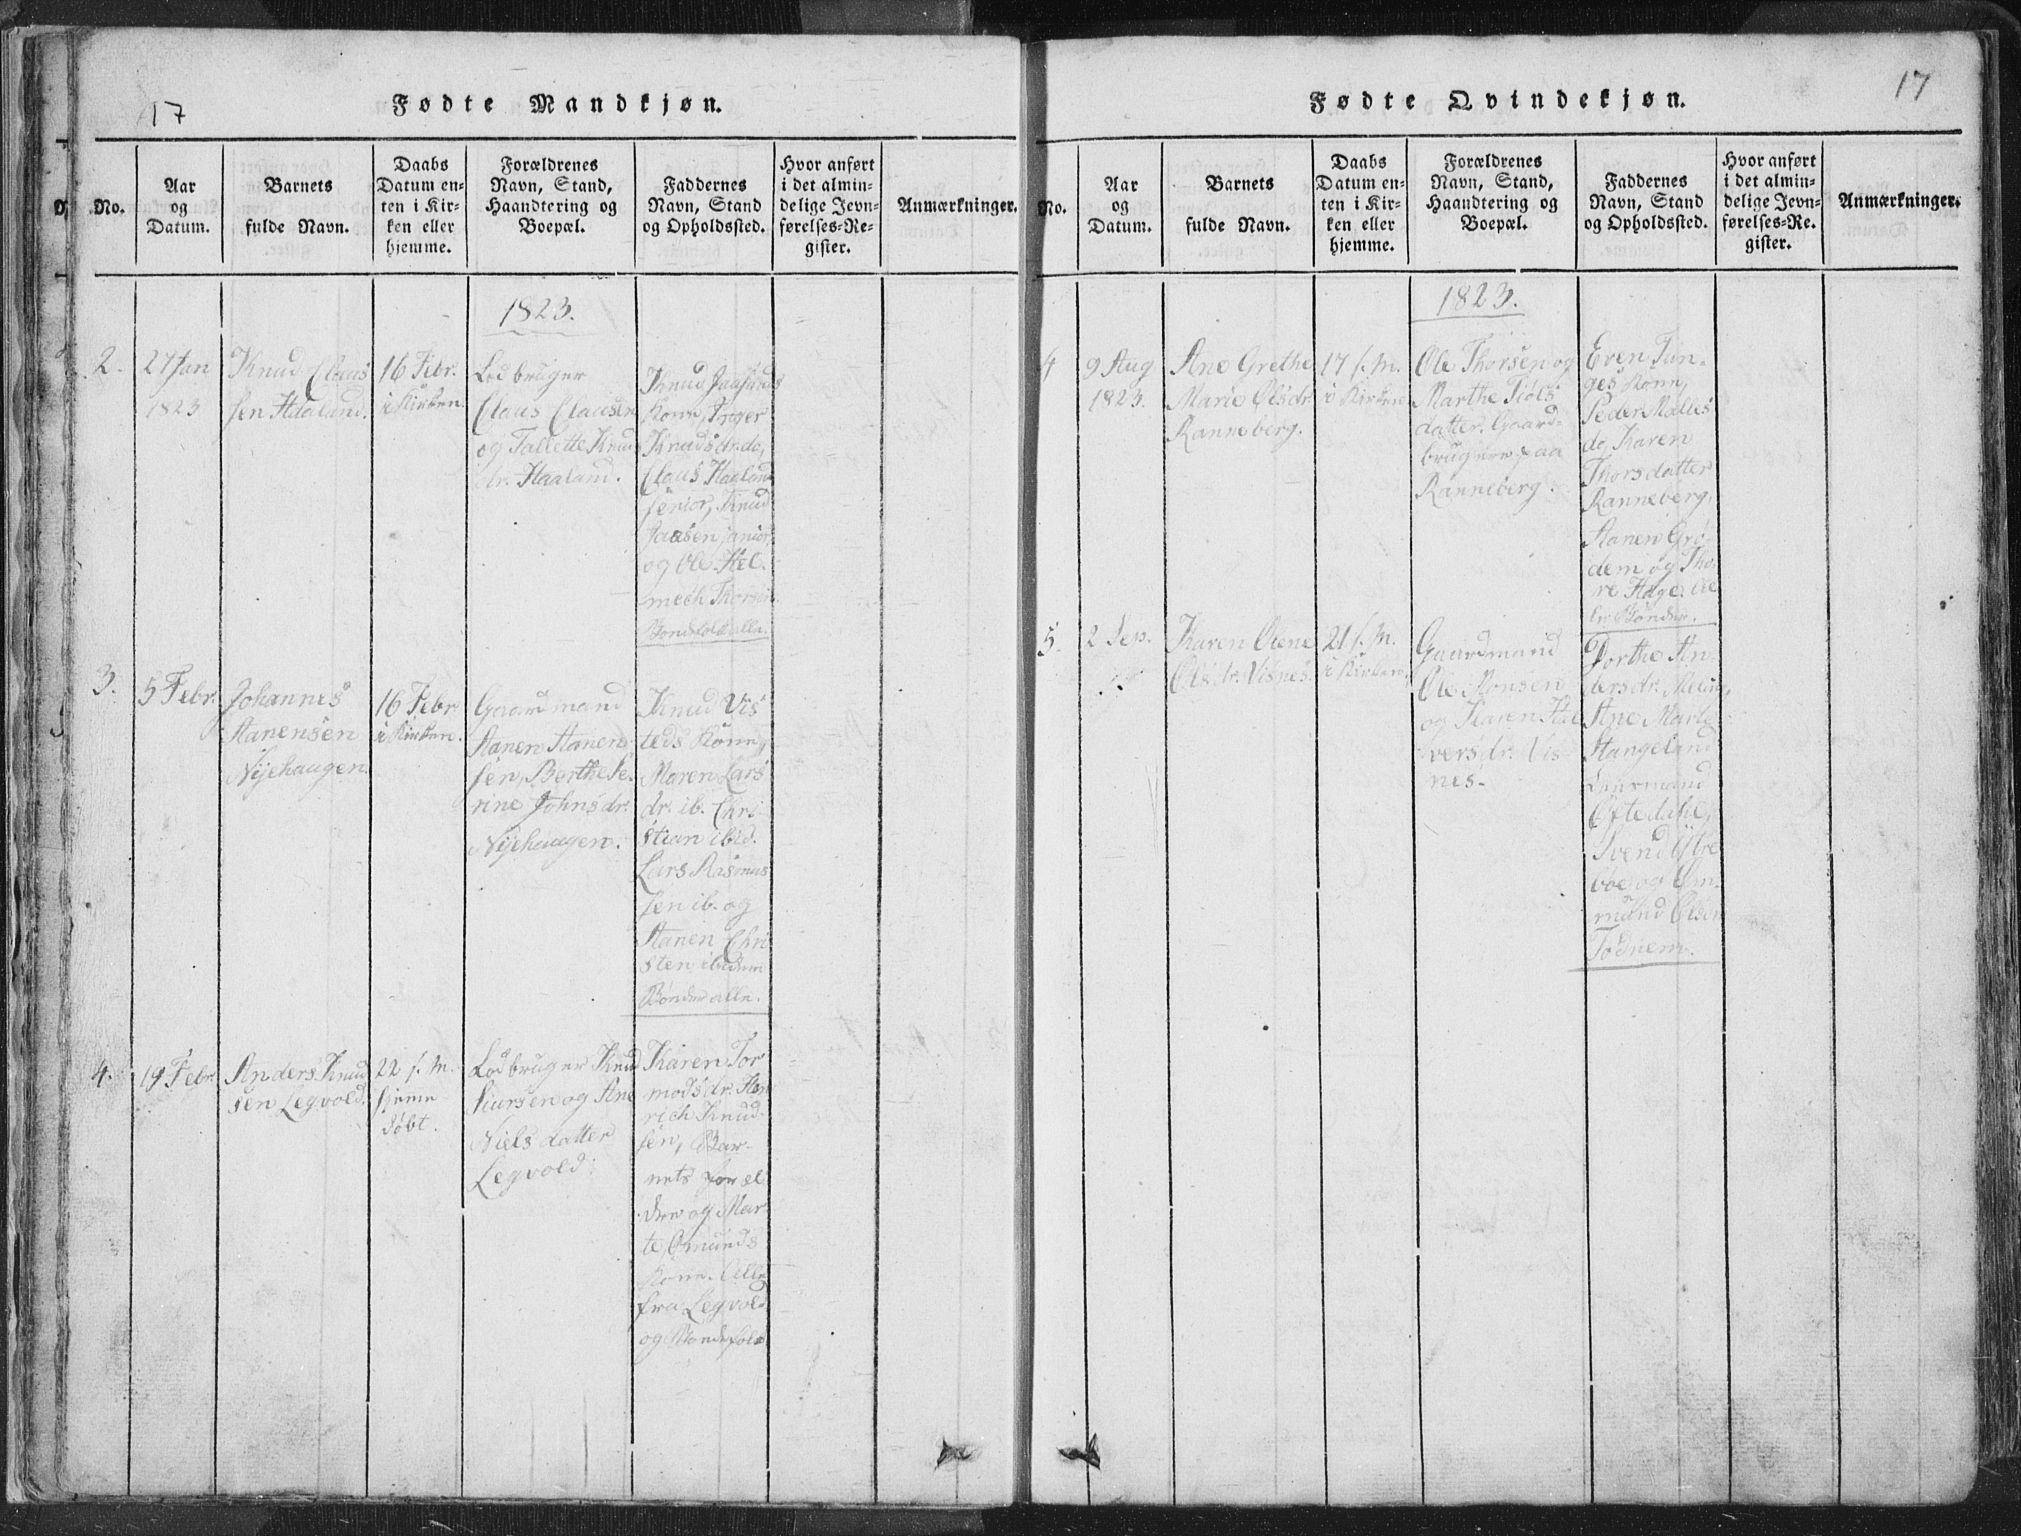 17
Fødte Mandkjøn.
No.
Aar
og
Datum.
Barnets
fulde Navn.
Daabs
Datum en-
ten i Kir-
ken eller
hjemme.
Forældrenes
Navn, Stand,
Haandtering og
Boepæl.
Faddernes
Navn, Stand
og Opholdssted.
Hvor anført
i det almin-
delige Jevn-
førelses-Re-
gister.
Anmærkninger.
1823.
2.
27 Jan
1823
Knud Claus
sen Haaland.
16 Febr.
i Kirken.
Lodbruger
Claus Clausen
og Tallette Knuds
dr. Haaland.
Knud Jaasunds
Kone, Inger
Knudsdr. do,
Claus Haaland
senior, Knud
Jaasen junior,
og Ole Hel-
mech Thorsen.
Bondefolk alle.
3.
5 Febr.
Johannes
Aanensen
Nijehaugen.
16 Febr
i Kirken.
Gaardmand
Aanen Aanen
sen, Berthe Se-
rine Johnsdr.
Nijehaugen.
Knud Vis
teds Kone,
Maren Lars
dr. ib. Chri
stian ibid.
Lars Rasmus
sen ib. og
Aanen Chri
sten ibidem
Bønder alle.
4.
19 Febr.
Anders Knud
sen Legvold.
22 s. M.
hjemme
døbt.
Lodbruger Knud
Siursen og Ane
Niels datter
Legvold.
Karen Tor
modsdr. Hen
rich Knud-
sen, Bar-
nets Foræl
dre og Mar
te Omunds
Kone. Alle
fra Legvold
og Bondefolk
17
Fødte Qvindekjøn.
No.
Aar
og
Datum.
Barnets
fulde Navn.
Daabs
Datum en-
ten i Kir-
ken eller
hjemme.
Forældrenes
Navn, Stand,
Haandtering og
Boepæl.
Faddernes
Navn, Stand
og Opholdssted.
Hvor anført
i det almin-
delige Jevn-
førelses-Re-
gister.
Anmærkninger.
1823.
4
9 Aug
1823.
Ane Grethe
Marie Olsdr.
Ranneberg.
17 s. M.
i Kirken
Ole Thorsen og
Marthe
datter. Gaard-
brugere paa
Ranneberg.
Even Tun-
ges Kone,
Peder Malles
do, Karen
Thorsdatter
Ranneberg,
Aanen Grø
dem og Tho
re Hage. Al
le Bønder.
5.
2 Sep.
Karen Oline
Olsdr. Visnes.
21 s. M.
i Kirken.
Gaardmand
Ole Monsen
og Karen Hal
versdr. Vis-
nes.
Dorthe An-
dersdr. Meling,
Ane Marte
Stangeland
Oftedahl,
Svend Østre
boe og Om-
mund Olsen
Todnem.